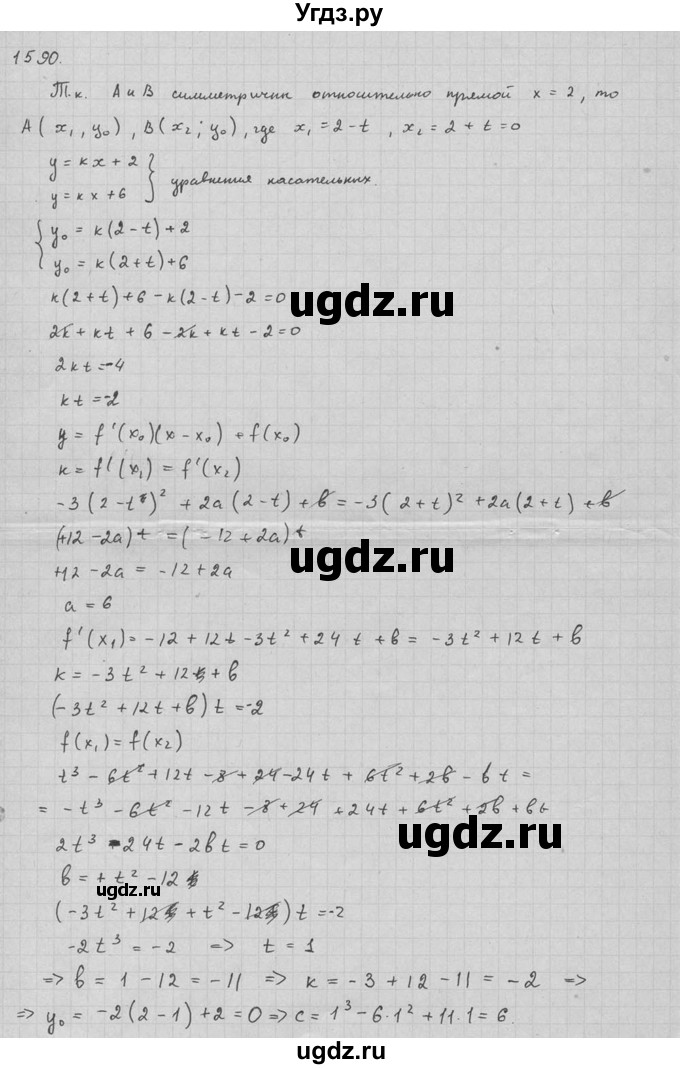 Угдз.ру
1590.
Т.к. A и B симметричн относительно прямой x = 2, то
A(x₁, y₀), B(x₂; y₀), где x₁ = 2 - t, x₂ = 2 + t = 0
y = kx + 2
y = kx + 6 } уравнения касательных.
{ y₀ = k(2 - t) + 2
y₀ = k(2 + t) + 6
k(2 + t) + 6 - k(2 - t) - 2 = 0
ugdz.ru
2k + kt + 6 - 2k + kt - 2 = 0
2kt = -4
kt = -2
y = f'(x₀)(x - x₀) + f(x₀)
k = f'(x₁) = f'(x₂)
-3(2 - t)² + 2a(2 - t) + b = -3(2 + t)² + 2a(2 + t) + b
(+12 - 2a)t = (-12 + 2a)t
ugdz.ru
+12 - 2a = -12 + 2a
a = 6
f'(x₁) = -12 + 12t - 3t² + 24 t + b = -3t² + 12t + b
k = -3t² + 12 + b
(-3t² + 12t + b)t = -2
f(x₁) = f(x₂)
t³ - 6t² + 12t - 8 + 24 - 24t + 6t² + 2b - bt =
= -t³ - 6t² - 12t - 8 + 24 + 24t + 6t² + 2b + bt
ugdz.ru
2t³ - 24t - 2bt = 0
b = + t² - 12
ugdz.ru
(-3t² + 12 + t² - 12)t = -2
-2t³ = -2 => t = 1
=> b = 1 - 12 = -11 => k = -3 + 12 - 11 = -2 =>
=> y₀ = -2(2 - 1) + 2 = 0 => c = 1³ - 6·1² + 11·1 = 6.
ugdz.ru